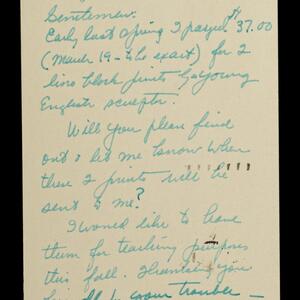 Gentlemen:
Early last spring I payed $37.00
(March 19 - to be exact) for 2
lino block prints by young
English sculptor.
Will you please find
out & let me know when
these 2 prints will be
sent to me?
I would like to have
them for teaching purposes
this fall. Thank you
for your trouble -